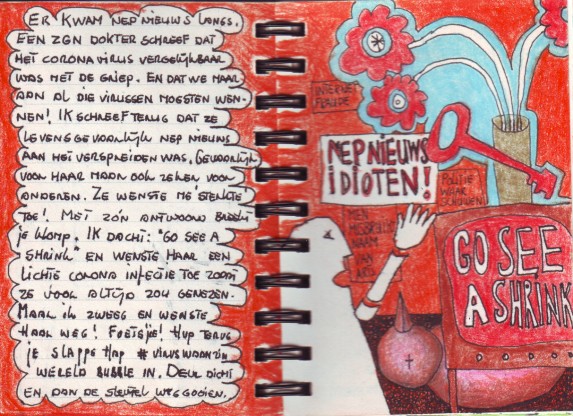 ER KWAM NEP NIEUWS LANGS.
EEN ZGN DOKTER SCHREEF DAT
HET CORONA VIRUS VERGELIJKBAAR
WAS MET DE GRIEP. EN DAT WE MAAR
AAN AL DIE VIRUSSEN MOESTEN WEN-
NEN! IK SCHREEF TERUG DAT ZE
LEVENSGEVAARLIJK NEP NIEUWS
AAN HET VERSPREIDEN WAS. GEVAARLIJK
VOOR HAAR MAAR OOK ZEKER VOOR
ANDEREN. ZE WENSTE ME 'STERKTE'
TOE! MET ZO'N ANTWOORD
JE KLOMP. IK DACHT: "GO SEE A
SHRINK" EN WENSTE HAAR EEN
LICHTE CORONA INFECTIE TOE ZODAT
ZE VOOR ALTIJD ZOU GENEZEN.
MAAR IK ZWEEG EN WENSTE
HAAR WEG! FOETSJE! HUP TERUG
JE SLAPPE HAP # VIRUSWAANZIN
WERELD BUBBLE IN. DEUR DICHT
EN DAN DE SLEUTEL WEGGOOIEN.
INTERNET
FRAUDE
NEPNIEUWS
IDIOTEN!
POLITIE
MEN
NAAM
GO SEE
A SHRINK